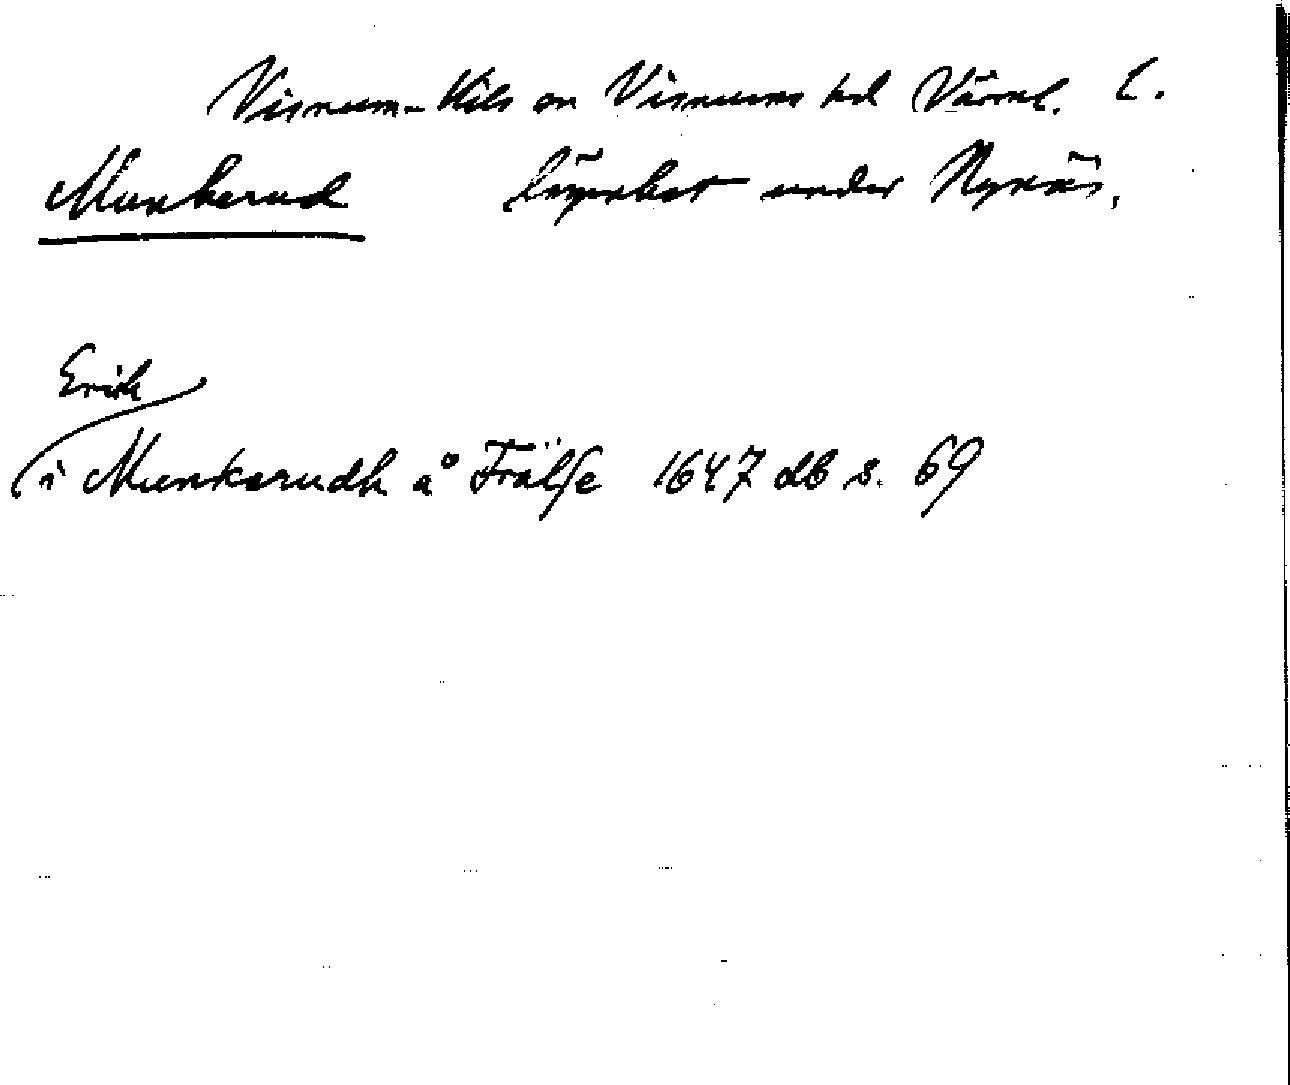 Visnum-Kils sn Visnums hd Värml. l.
Munkerud lägenhet under Nynäs,
Erik
i Munkerudh å Frälsse 1647 db s. 69